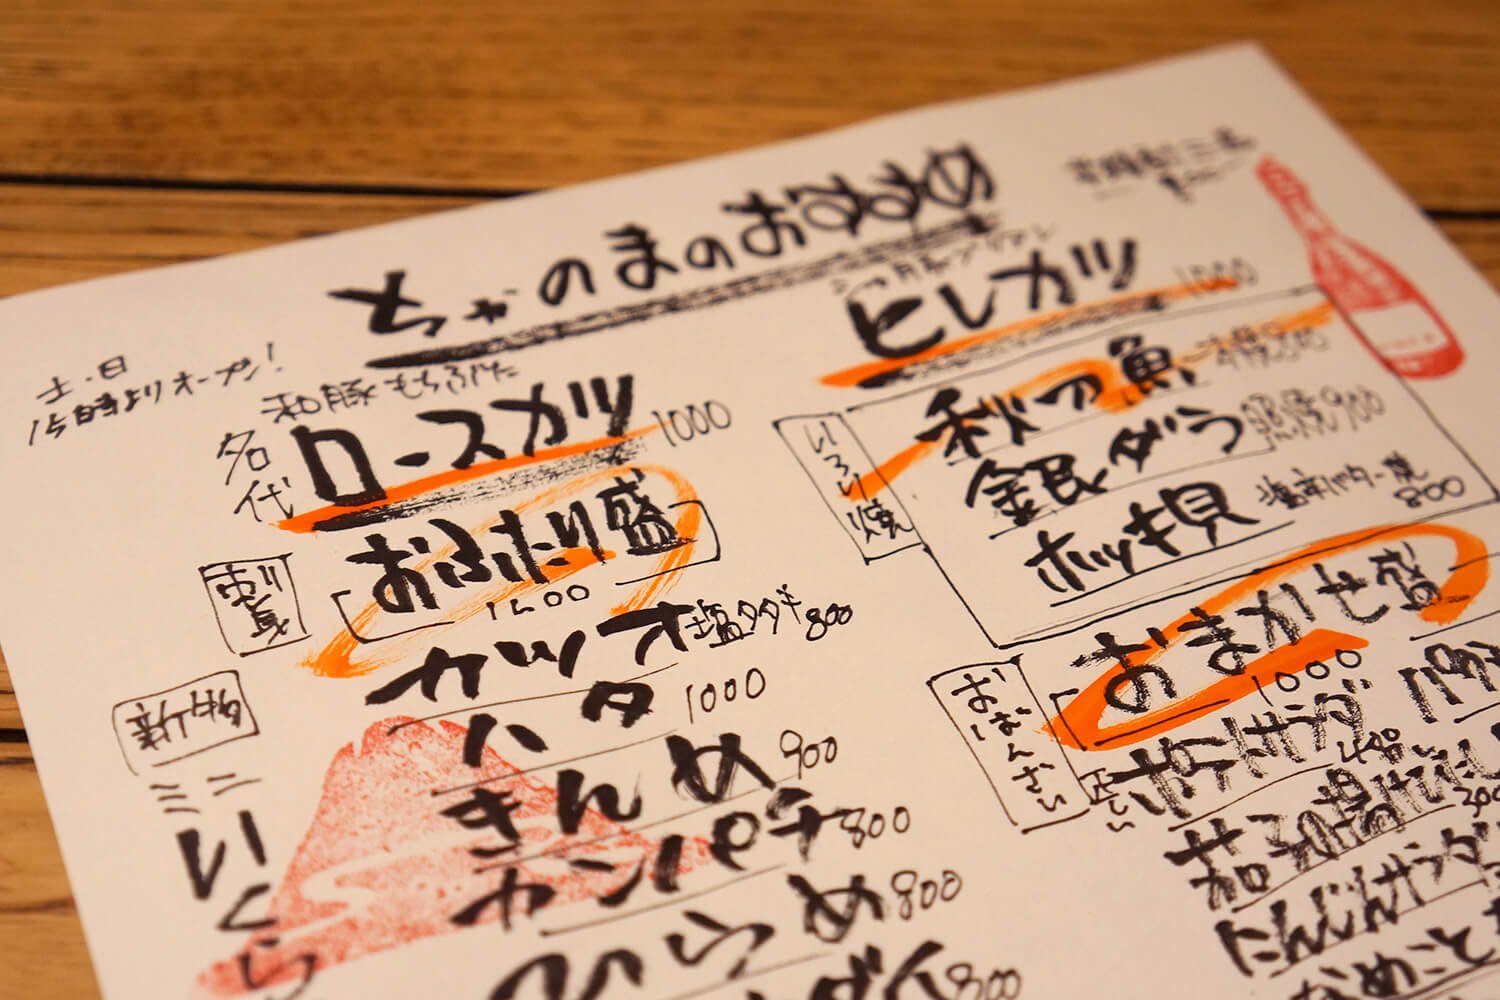 ちゃのまのおすすめ
土・日
15時よりオープン!
和豚もちぶた
名代
ロースカツ 1000
刺身
おふたり盛
1600
カツオ 塩タタキ 800
ハタ 1000
きんめ 900
カンパチ 800
ひらめ 800
ミニ
いくら
ヒレカツ 1000
いろり焼
秋刀魚
銀ダラ 照焼 900
ホッキ貝 塩辛バター焼 800
おばんざい
おまかせ盛
1000
正しい
ポテトサラダ 400
茄子の揚げだし 300
にんじんサラダ